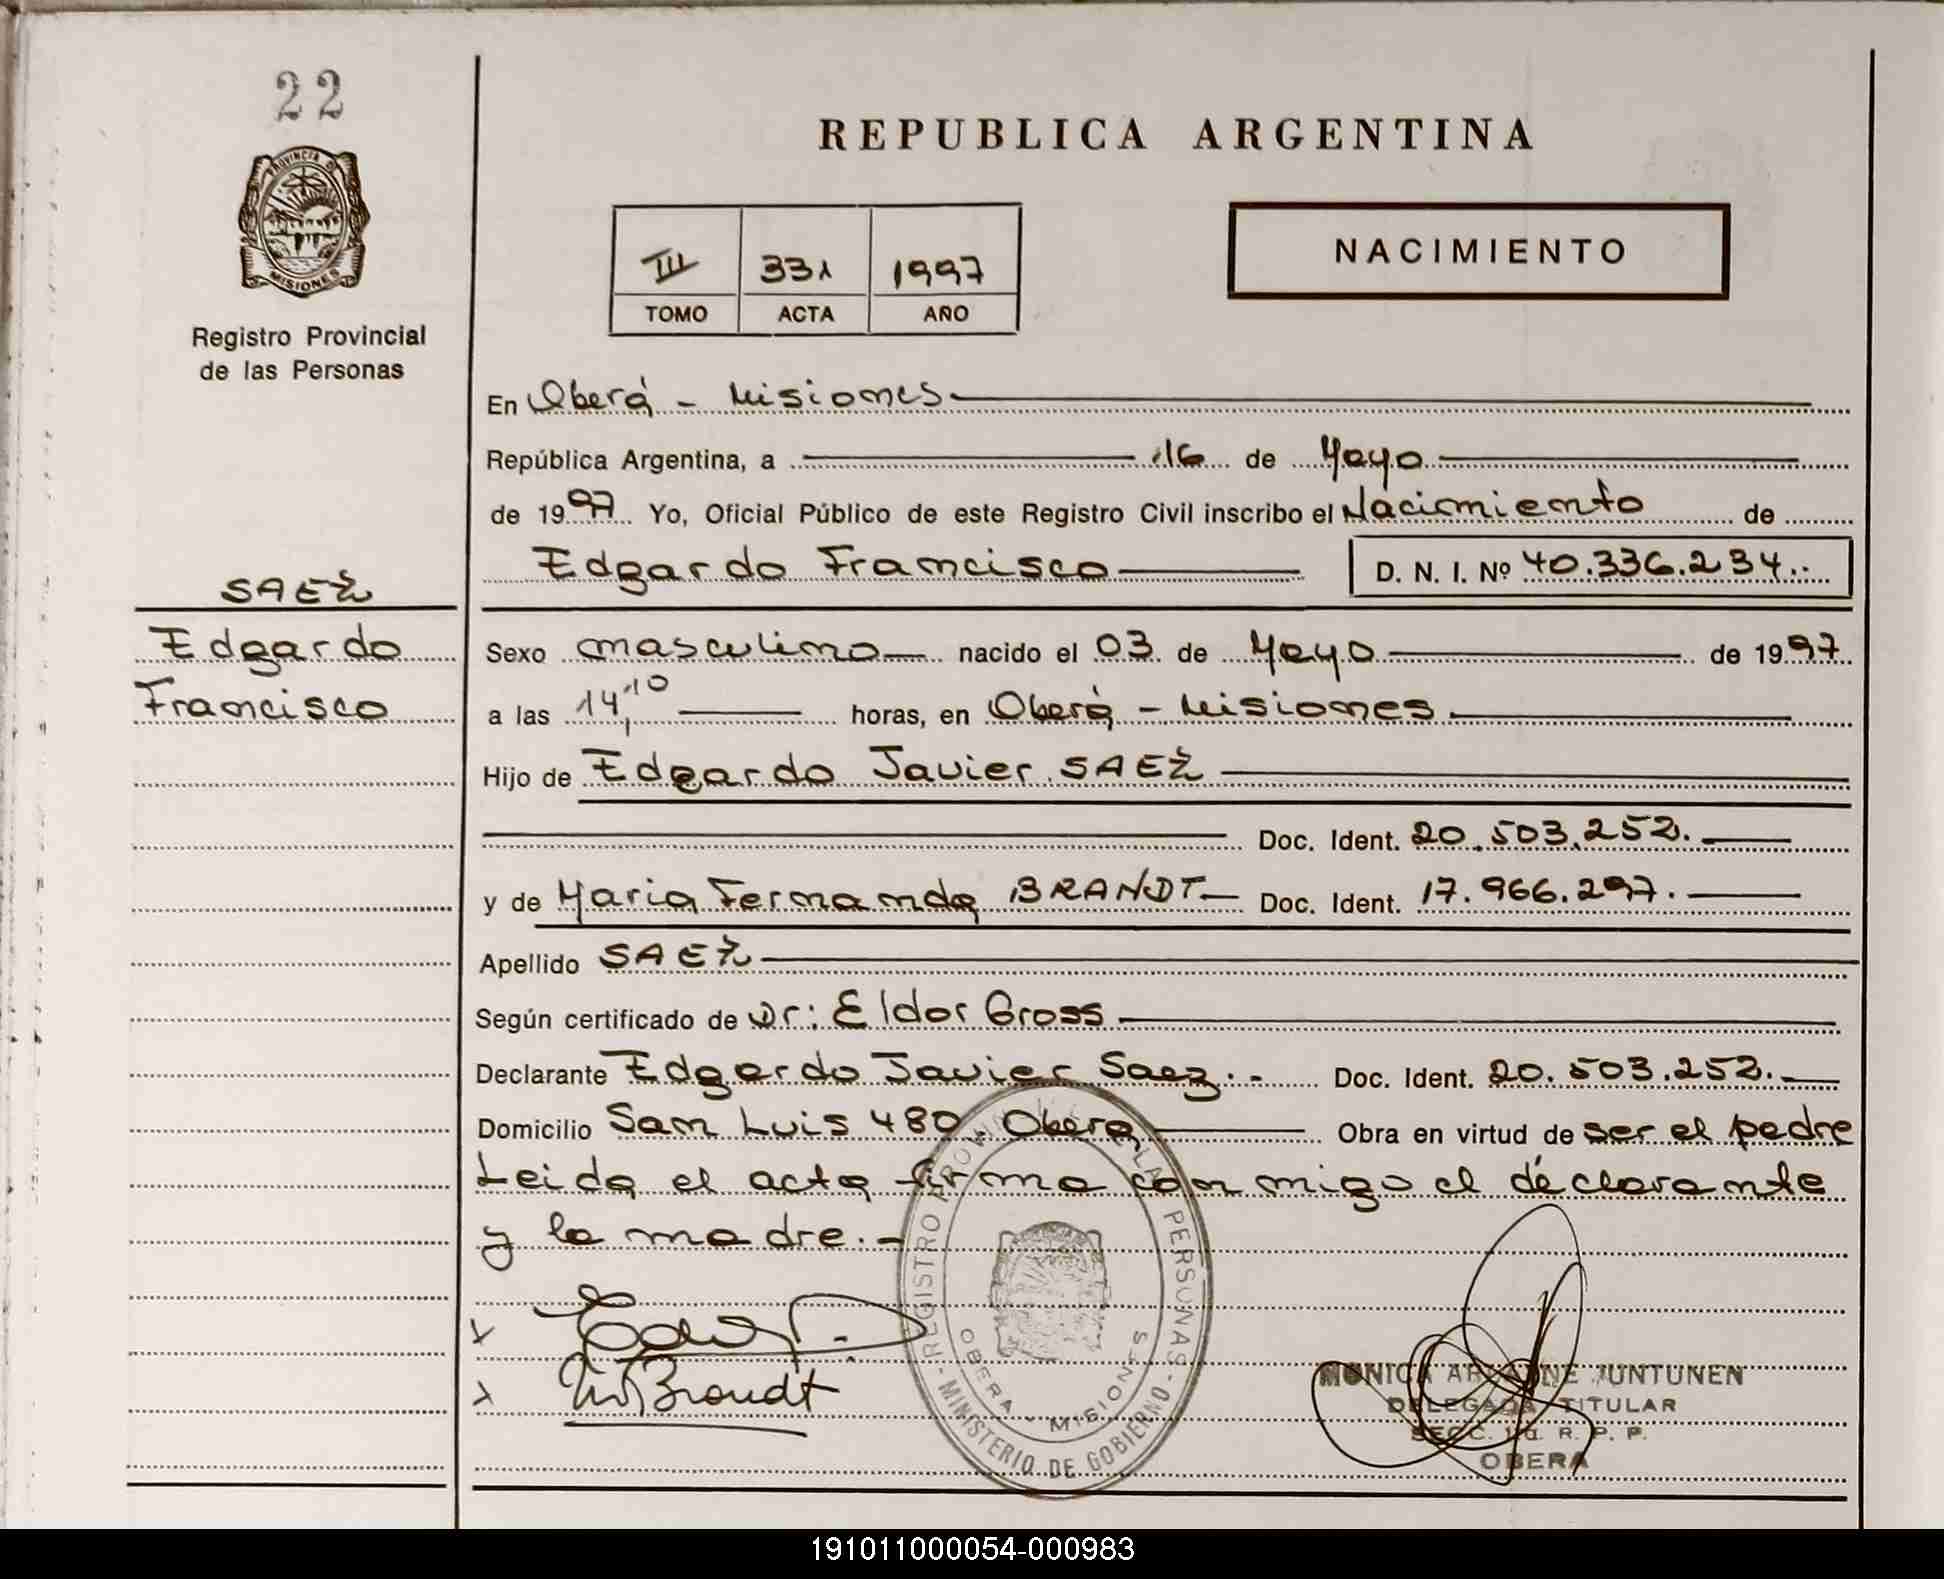 22
PROVINCIA DE
MISIONES
Registro Provincial
de las Personas
REPUBLICA ARGENTINA
NACIMIENTO
III 331 1997
TOMO ACTA AÑO
En Oberá - Misiones
República Argentina, a 16 de Mayo
de 1997 Yo, Oficial Público de este Registro Civil inscribo el Nacimiento de
Edgardo Francisco D. N. I. Nº 40.336.234..
SAEZ
Edgardo
Francisco
Sexo masculino nacido el 03 de Mayo de 1997
a las 14,10 horas, en Oberá - Misiones
Hijo de Edgardo Javier SAEZ
Doc. Ident. 20.503.252.
y de Maria Fernanda BRANDT Doc. Ident. 17.966.297.
Apellido SAEZ
Según certificado de Dr: Eldor Gross
Declarante Edgardo Javier Saez.- Doc. Ident. 20.503.252.
Domicilio San Luis 480 Obera Obra en virtud de ser el padre
Leida el acta firma conmigo el declarante
y la madre.-
REGISTRO PROVINCIAL DE LAS PERSONAS - MINISTERIO DE GOBIERNO -
OBERA - MISIONES
Brandt
MONICA ARIADNE JUNTUNEN
DELEGADA TITULAR
SECC. 1a. R. P. P.
OBERA
191011000054-000983